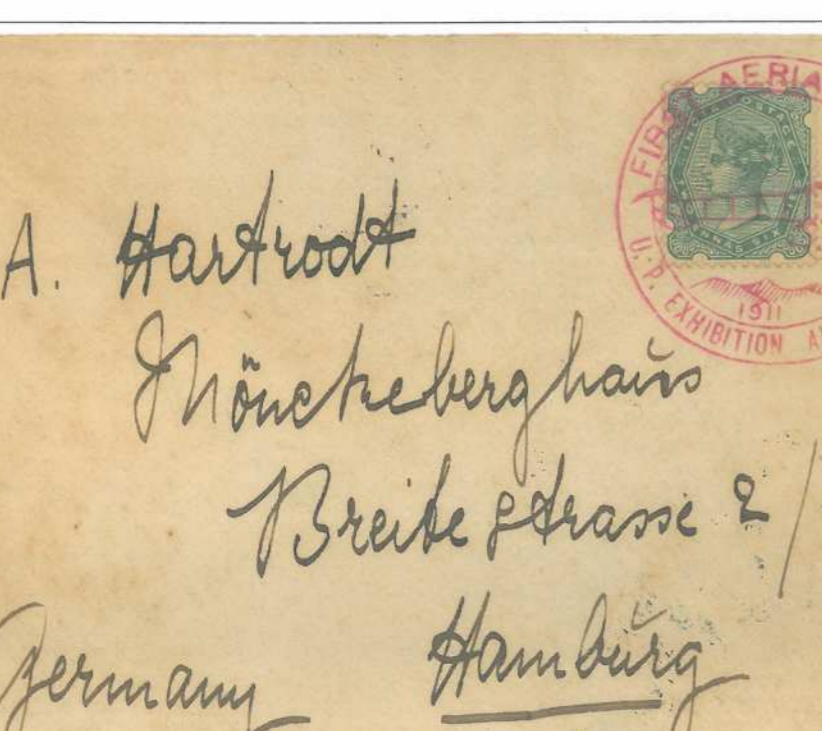 FIRST AERIA
U. P. EXHIBITION A
1911
POSTAGE
ANNAS SIX
A. Hartrodt
Mönckeberghaus
Breitestrasse 2
Hamburg
Germany